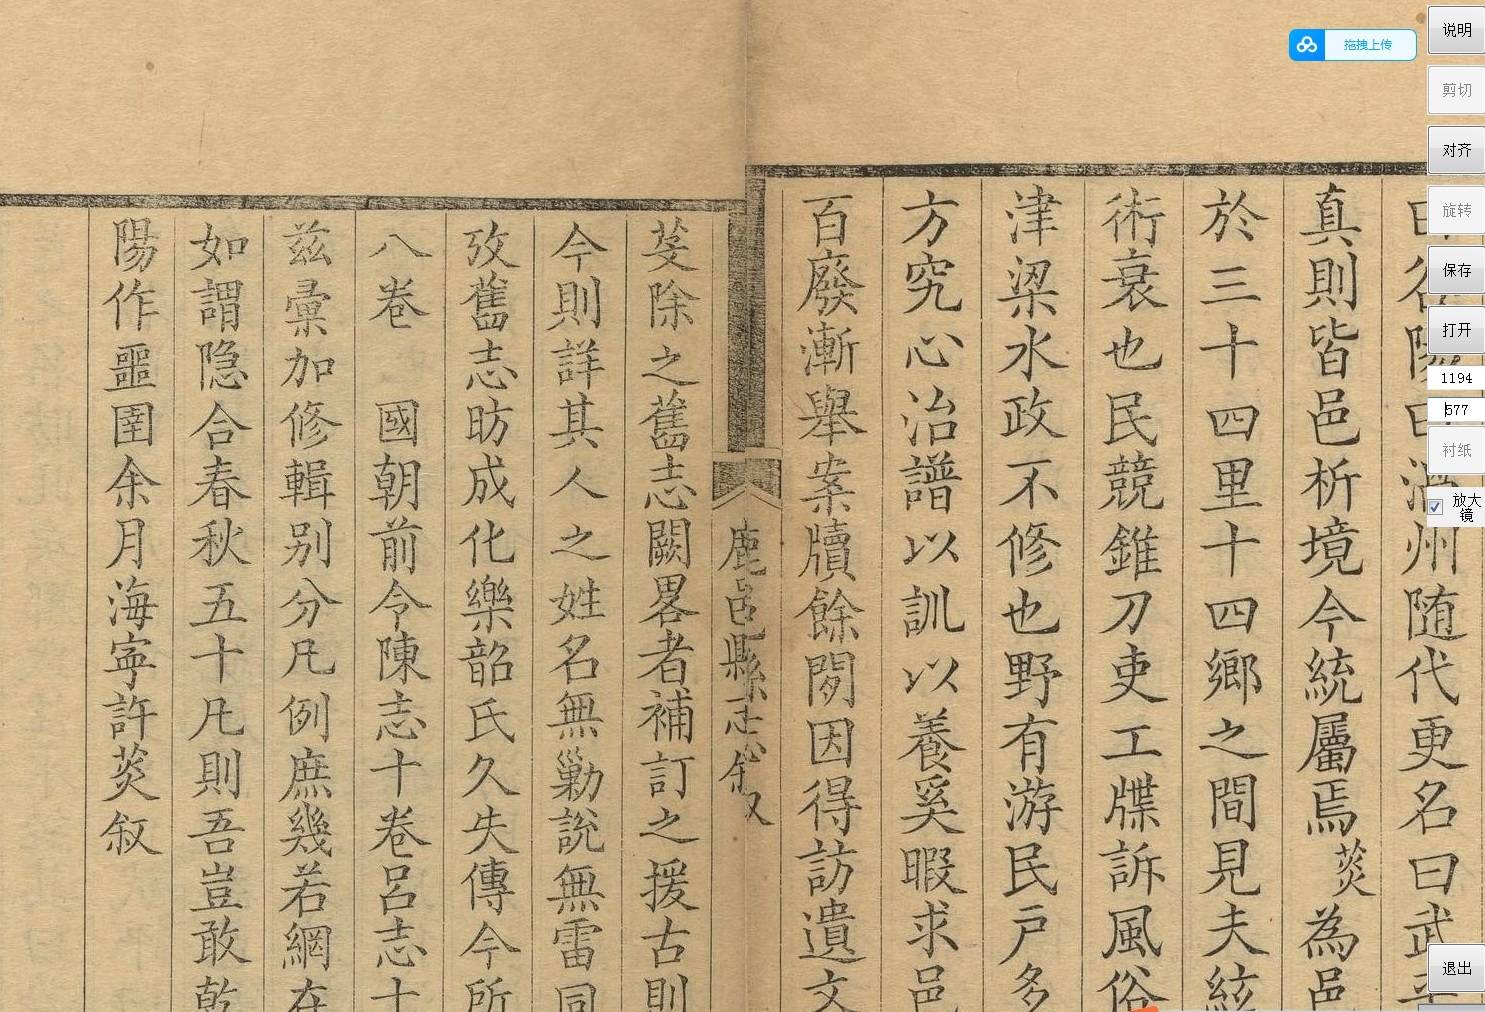 代更名曰武平
真則皆邑析境今統屬焉葵為邑
於三十四里十四鄉之間見夫絃
術衰也民競錐刀吏工牒訴風俗
津梁水政不修也野有游民戸多
方究心治譜以訓以養奚暇求邑
百廢漸舉案牘餘閒因得訪遺文
鹿邑縣志
芟除之舊志闕畧者補訂之援古則
今則詳其人之姓名無勦說無雷同
攷舊志昉成化樂韶氏久失傳今所
八卷　國朝前令陳志十卷呂志十
兹彙加修輯别分凡例庶幾若網在
如謂隐合春秋五十凡則吾豈敢乾
陽作噩圉余月海寧許葵叙
拖拽上传
说明
剪切
对齐
旋转
保存
打开
1194
577
衬纸
放大镜
退出